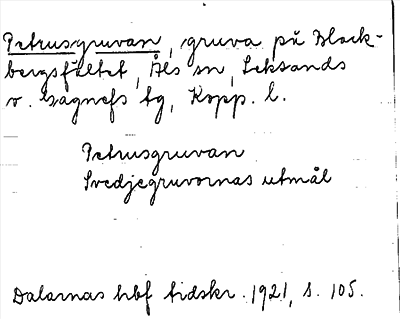 Petrusgruvan, gruva på Bleck-
bergsfältet, Åls sn, Leksands
o. Gagnefs tg, Kopp. l.
Petrusgruvan
Svedjegruvornas utmål
Dalarnas hbf tidskr. 1921, s. 105.